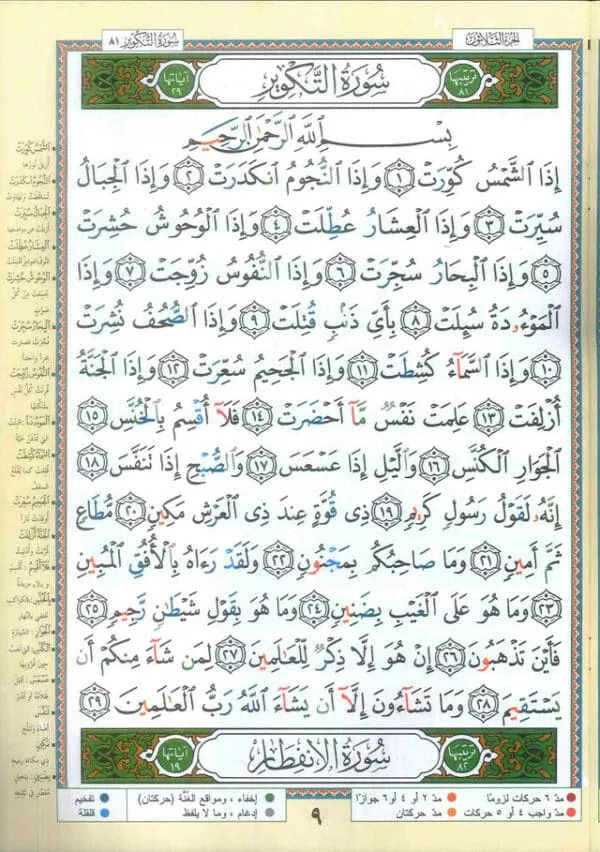 الجزء الثلاثون
سورة التكوير ٨١
ترتيبها ٨١
سُورَةُ التَّكْوِيرِ
آياتها ٢٩
بِسْمِ ٱللَّهِ ٱلرَّحْمَٰنِ ٱلرَّحِيمِ
إِذَا ٱلشَّمْسُ كُوِّرَتْ ١ وَإِذَا ٱلنُّجُومُ ٱنكَدَرَتْ ٢ وَإِذَا ٱلْجِبَالُ
سُيِّرَتْ ٣ وَإِذَا ٱلْعِشَارُ عُطِّلَتْ ٤ وَإِذَا ٱلْوُحُوشُ حُشِرَتْ
٥ وَإِذَا ٱلْبِحَارُ سُجِّرَتْ ٦ وَإِذَا ٱلنُّفُوسُ زُوِّجَتْ ٧ وَإِذَا
ٱلْمَوْءُۥدَةُ سُئِلَتْ ٨ بِأَىِّ ذَنۢبٍ قُتِلَتْ ٩ وَإِذَا ٱلصُّحُفُ نُشِرَتْ
١٠ وَإِذَا ٱلسَّمَآءُ كُشِطَتْ ١١ وَإِذَا ٱلْجَحِيمُ سُعِّرَتْ ١٢ وَإِذَا ٱلْجَنَّةُ
أُزْلِفَتْ ١٣ عَلِمَتْ نَفْسٌ مَّآ أَحْضَرَتْ ١٤ فَلَآ أُقْسِمُ بِٱلْخُنَّسِ ١٥
ٱلْجَوَارِ ٱلْكُنَّسِ ١٦ وَٱلَّيْلِ إِذَا عَسْعَسَ ١٧ وَٱلصُّبْحِ إِذَا تَنَفَّسَ ١٨
إِنَّهُۥ لَقَوْلُ رَسُولٍ كَرِيمٍ ١٩ ذِى قُوَّةٍ عِندَ ذِى ٱلْعَرْشِ مَكِينٍ ٢٠ مُّطَاعٍ
ثَمَّ أَمِينٍ ٢١ وَمَا صَاحِبُكُم بِمَجْنُونٍ ٢٢ وَلَقَدْ رَءَاهُ بِٱلْأُفُقِ ٱلْمُبِينِ
٢٣ وَمَا هُوَ عَلَى ٱلْغَيْبِ بِضَنِينٍ ٢٤ وَمَا هُوَ بِقَوْلِ شَيْطَٰنٍ رَّجِيمٍ ٢٥
فَأَيْنَ تَذْهَبُونَ ٢٦ إِنْ هُوَ إِلَّا ذِكْرٌ لِّلْعَٰلَمِينَ ٢٧ لِمَن شَآءَ مِنكُمْ أَن
يَسْتَقِيمَ ٢٨ وَمَا تَشَآءُونَ إِلَّآ أَن يَشَآءَ ٱللَّهُ رَبُّ ٱلْعَٰلَمِينَ ٢٩
ترتيبها ٨٢
سُورَةُ الِانْفِطَارِ
آياتها ١٩
الشمس كورت
النجوم انكدرت
الجبال سيرت
العشار عطلت
الوحوش حشرت
البحار سجرت
النفوس زوجت
مدّ ٦ حركات لزومًا
مدّ ٢ أو ٤ أو ٦ جوازًا
إخفاء ، ومواقع الغُنَّة (حركتان)
تفخيم
مدّ واجب ٤ أو ٥ حركات
مدّ حركتان
إدغام ، وما لا يلفظ
قلقلة
٩